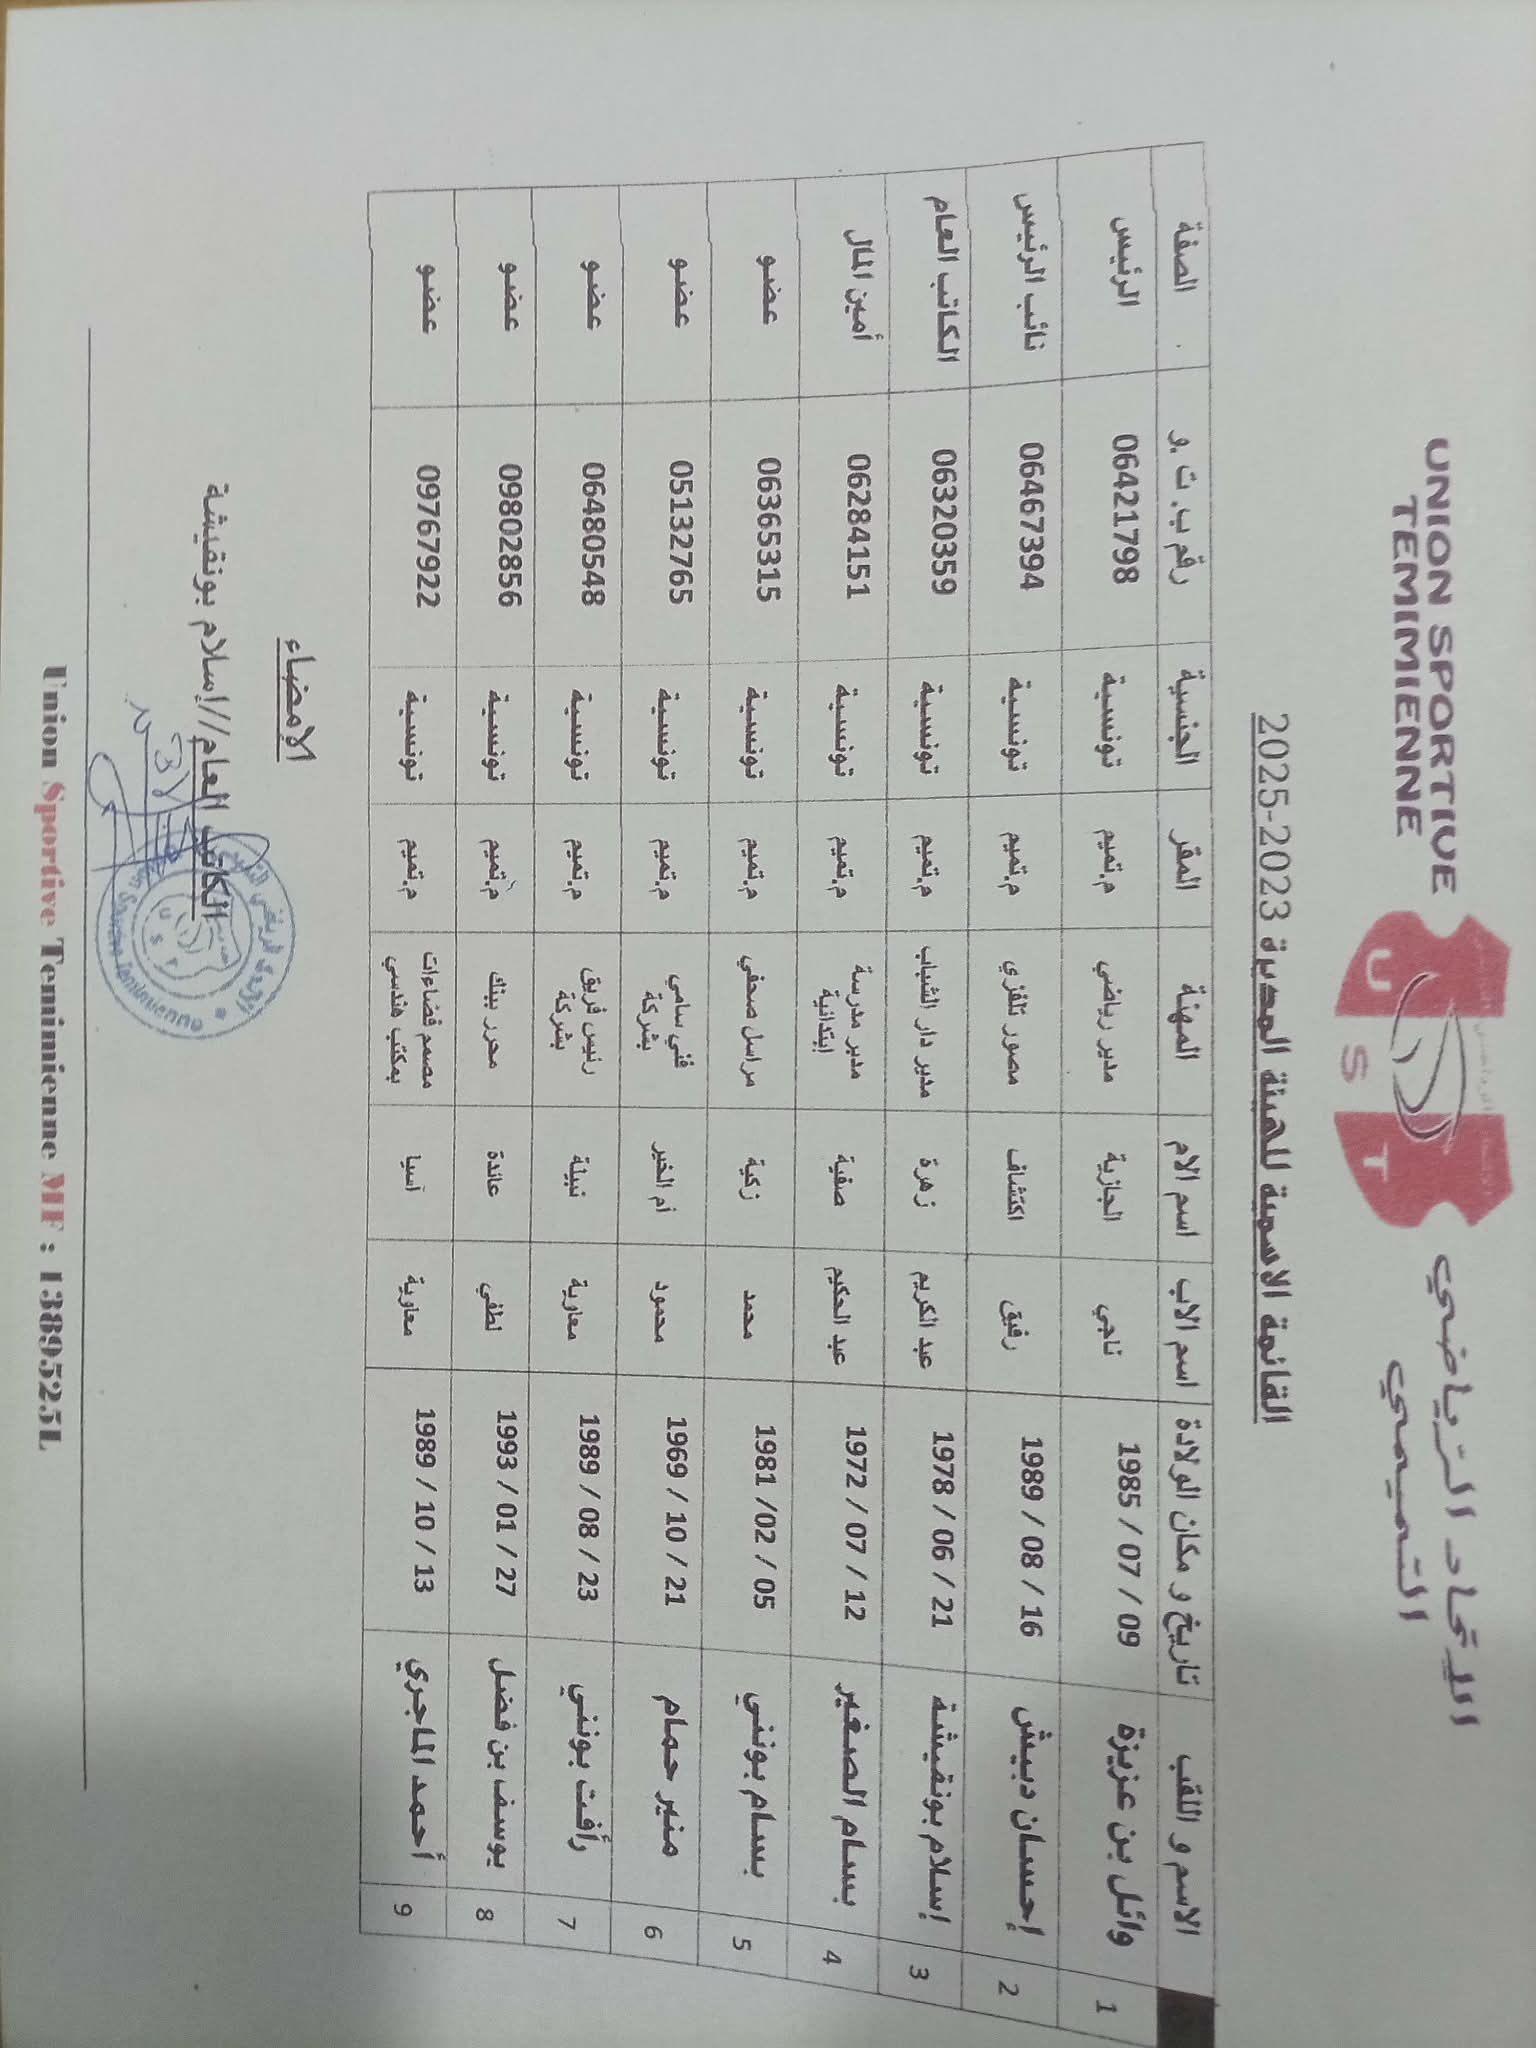 UNION SPORTIVE
TEMIMIENNE
الإتحاد الرياضي
التميمي
U S T
القائمة الاسمية للهيئة المديرة 2023-2025
الاسم و اللقب | تاريخ و مكان الولادة | اسم الاب | اسم الام | المهنة | المقر | الجنسية | رقم ب. ت .و | الصفة
1 | وائل بن عزيزة | 1985 / 07 / 09 | ناجي | الجازية | مدير رياضي | م.تميم | تونسية | 06421798 | الرئيس
2 | إحسان دبيش | 1989 / 08 / 16 | رفيق | اكتشاف | مصور تلفزي | م.تميم | تونسية | 06467394 | نائب الرئيس
3 | إسلام بونقيشة | 1978 / 06 / 21 | عبد الكريم | زهرة | مدير دار الشباب | م.تميم | تونسية | 06320359 | الكاتب العام
4 | بسام الصغير | 1972 / 07 / 12 | عبد الحكيم | صفية | مدير مدرسة إبتدائية | م.تميم | تونسية | 06284151 | أمين المال
5 | بسام بونني | 1981 /02 / 05 | محمد | زكية | مراسل صحفي | م.تميم | تونسية | 06365315 | عضو
6 | منير حمام | 1969 / 10 / 21 | محمود | أم الخير | فني سامي بشركة | م.تميم | تونسية | 05132765 | عضو
7 | رأفت بونني | 1989 / 08 / 23 | معاوية | نبيلة | رئيس فريق بشركة | م.تميم | تونسية | 06480548 | عضو
8 | يوسف بن فضل | 1993 / 01 / 27 | لطفي | عائدة | محرر ببنك | م.تميم | تونسية | 09802856 | عضو
9 | أحمد الماجري | 1989 / 10 / 13 | معاوية | آسيا | مصمم فضاءات بمكتب هندسي | م.تميم | تونسية | 09767922 | عضو
الإمضاء
الكاتب العام//إسلام بونقيشة
Union Sportive Temimienne MF : 1389525L